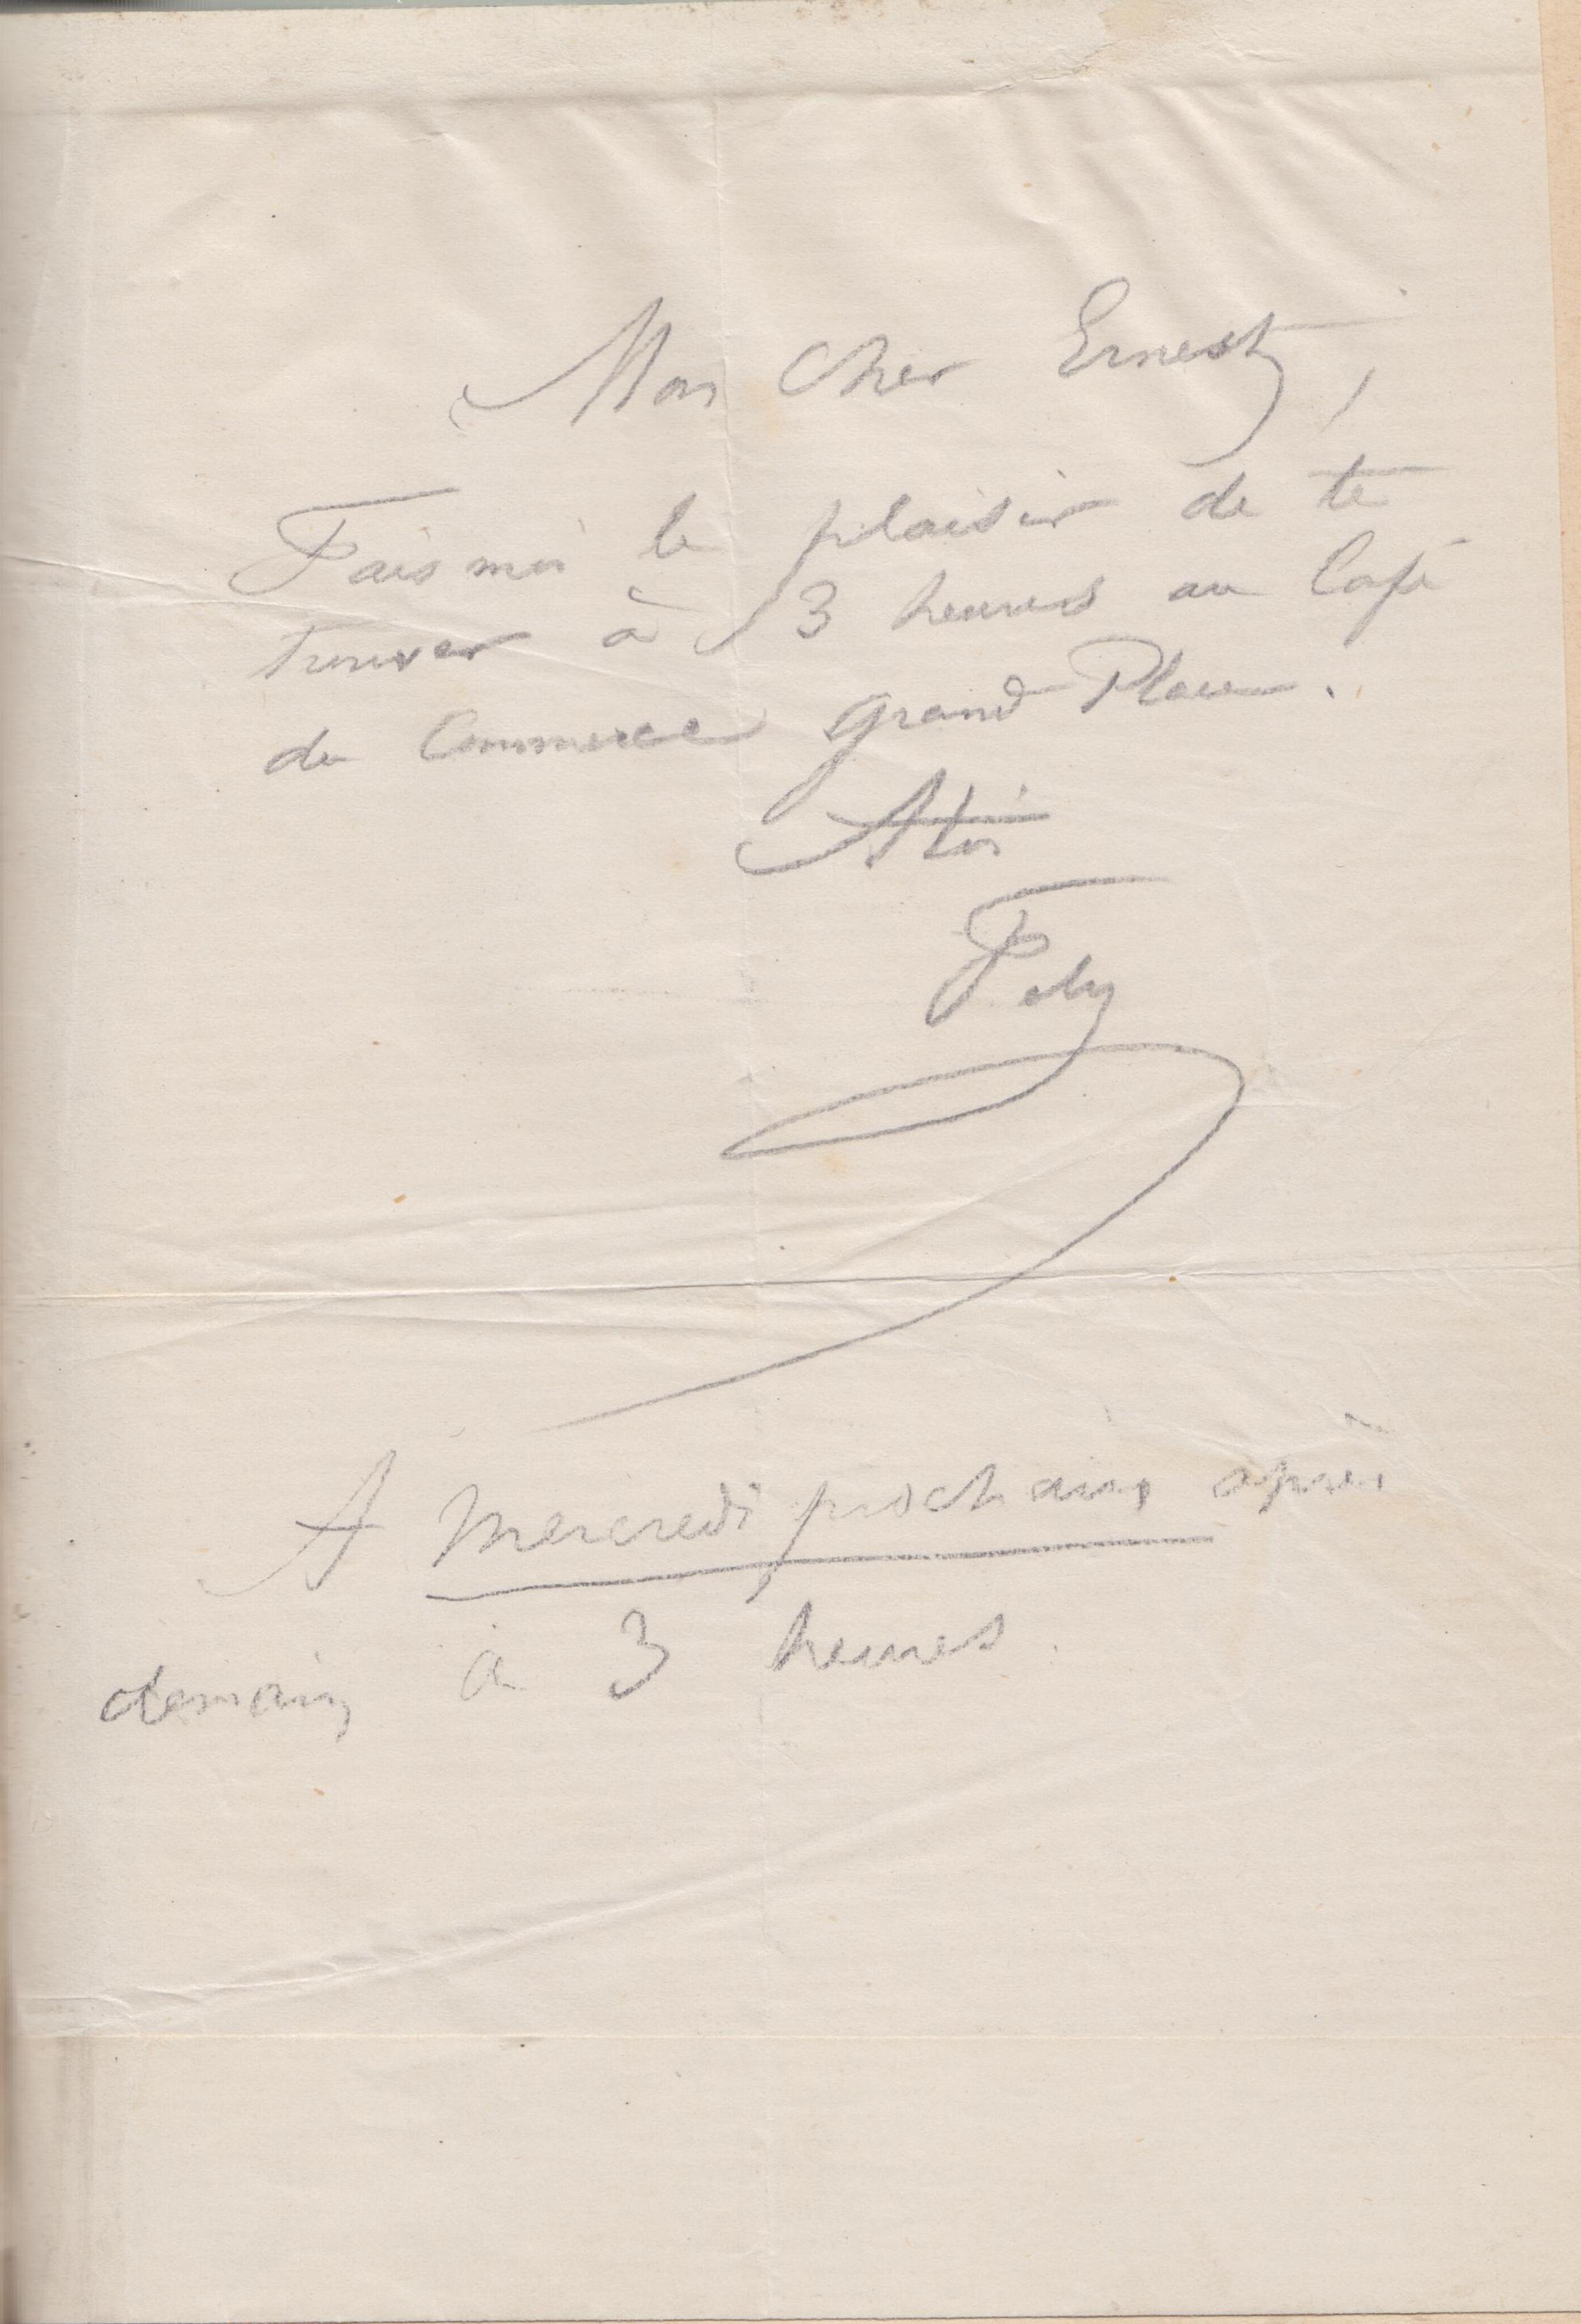 Mon cher Ernest,
Fais moi le plaisir de te
trouver à 3 heures au Café
du Commerce Grand Place.
A toi
Fély
A Mercredi prochain après
demain à 3 heures.